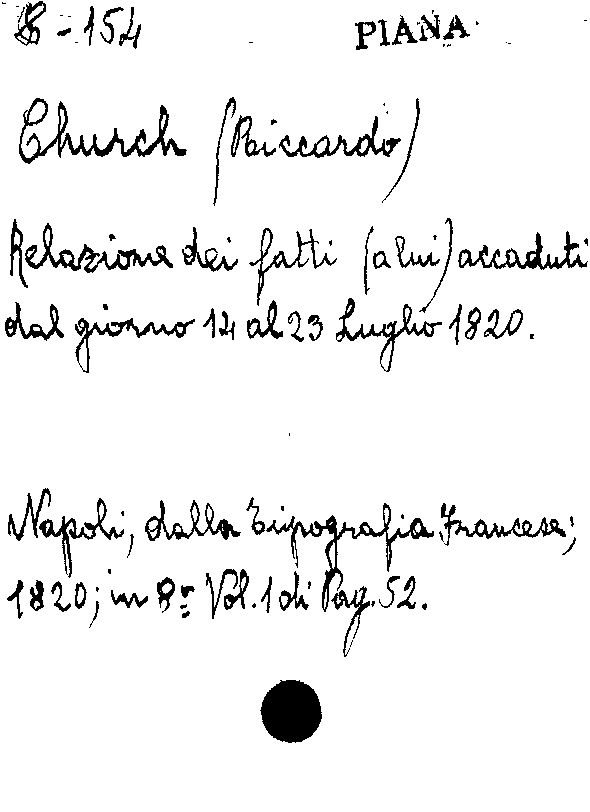 8-154 PIANA
Church (Riccardo)
Relazione dei fatti (a lui) accaduti
dal giorno 14 al 23 Luglio 1820.
Napoli, dalla Tipografia Francese;
1820; in 8º Vol. 1 di Pag. 52.